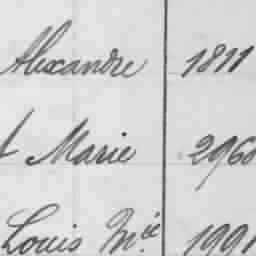 Alexandre 1811
Marie 296
Louis M.é 199